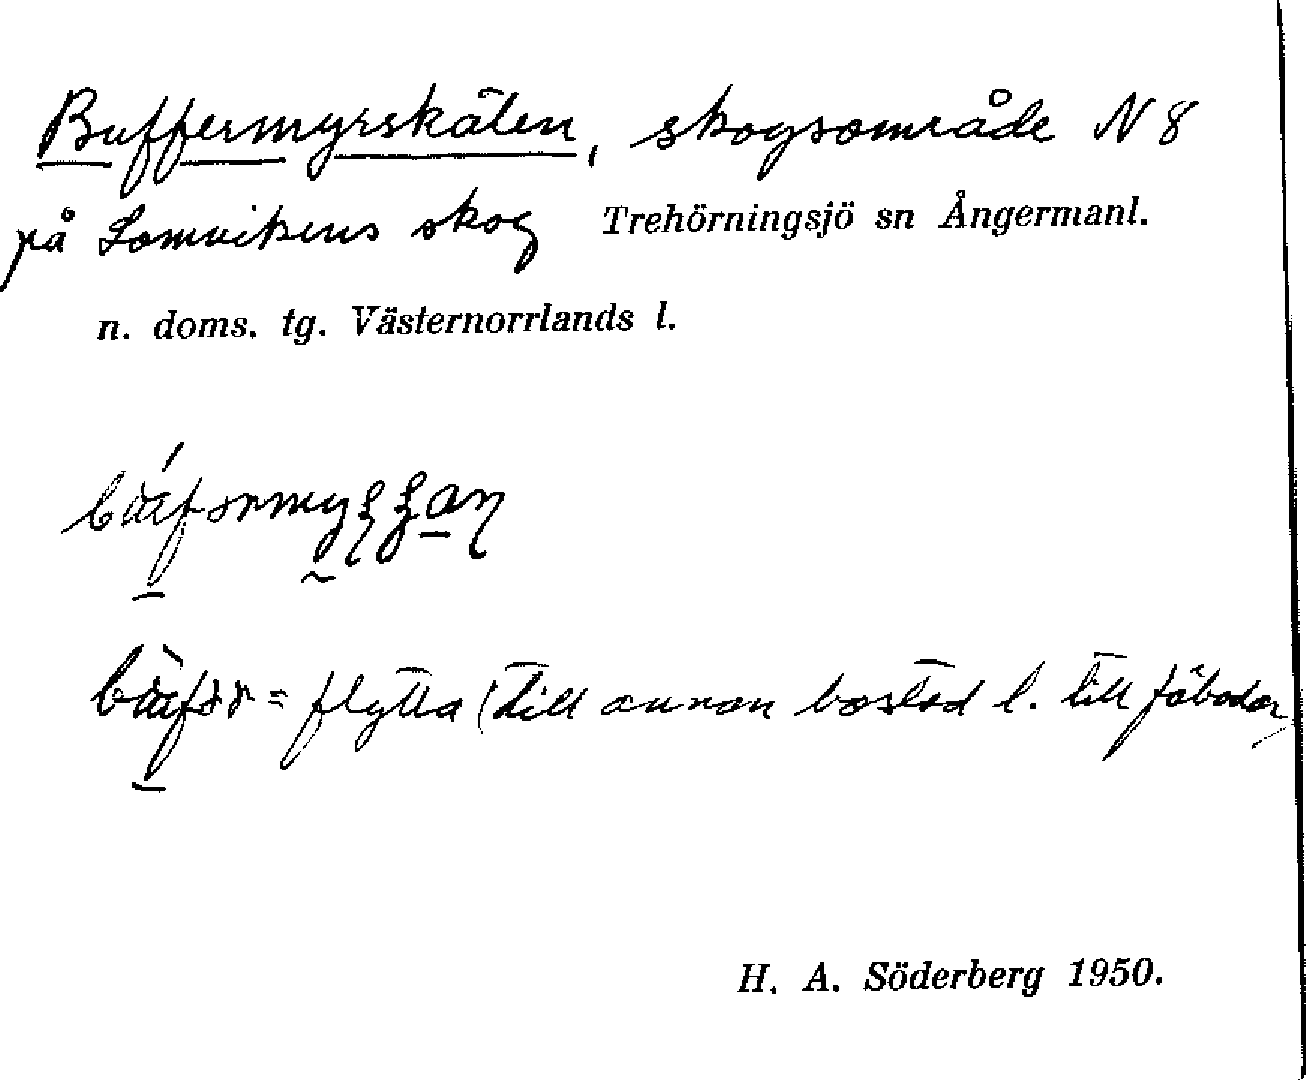 Buffermyrskälen, skogsområde N 8
på Lomvikens skog Trehörningsjö sn Ångermanl.
n. doms. tg. Västernorrlands l.
= flytta (till annan bostad l. till fäbodar)
H. A. Söderberg 1950.